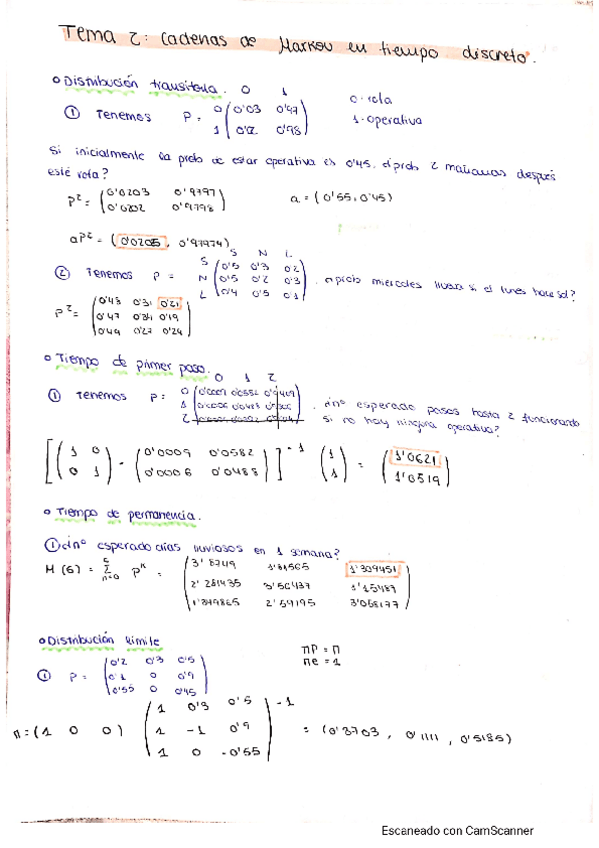 Tema 2: Cadenas de Markov en tiempo discreto.
Distribución transitoria.
0 1
① Tenemos P = 0 (0'03 0'47)
1 (0'02 0'98)
0 · rota
1 · operativa
Si inicialmente la prob de estar operativa es 0'45, ¿prob 2 mañanas después
esté rota?
P² = (0'0203 0'9797)
(0'0202 0'9798)
a = (0'55, 0'45)
aP² = (0'0205, 0'97974)
S N L
② Tenemos P = S (0'5 0'3 0'2)
N (0'5 0'2 0'3)
L (0'4 0'5 0'1)
miercoles llueva si el lunes hace sol?
P² = (0'43 0'31 0'21)
(0'47 0'34 0'19)
(0'49 0'27 0'24)
Tiempo de primer paso.
0 1 2
① Tenemos P = 0 (0'0009 0'0582
1 (0'0006 0'0488
2
¿nº esperado pasos hasta 2 funcionando
si no hay ninguna operativa?
[(1 0) - (0'0009 0'0582)]⁻¹ (1) = (1'0621)
[(0 1) (0'0006 0'0488)] (1) (1'0519)
Tiempo de permanencia.
① ¿nº esperado días lluviosos en 1 semana?
M(6) = Σ n=0 Pⁿ = (3'8749 1'81565 1'309451)
(2'281435 3'56437 1'15487)
(2'54195 3'068177)
Distribución límite
① P = (0'2 0'3 0'5)
(0'1 0 0'9)
(0'55 0 0'45)
πP = π
πe = 1
π = (1 0 0) (1 0'3 0'5)⁻¹
(1 -1 0'9)
(1 0 -0'55)
= (0'3703, 0'1111, 0'5185)
Escaneado con CamScanner